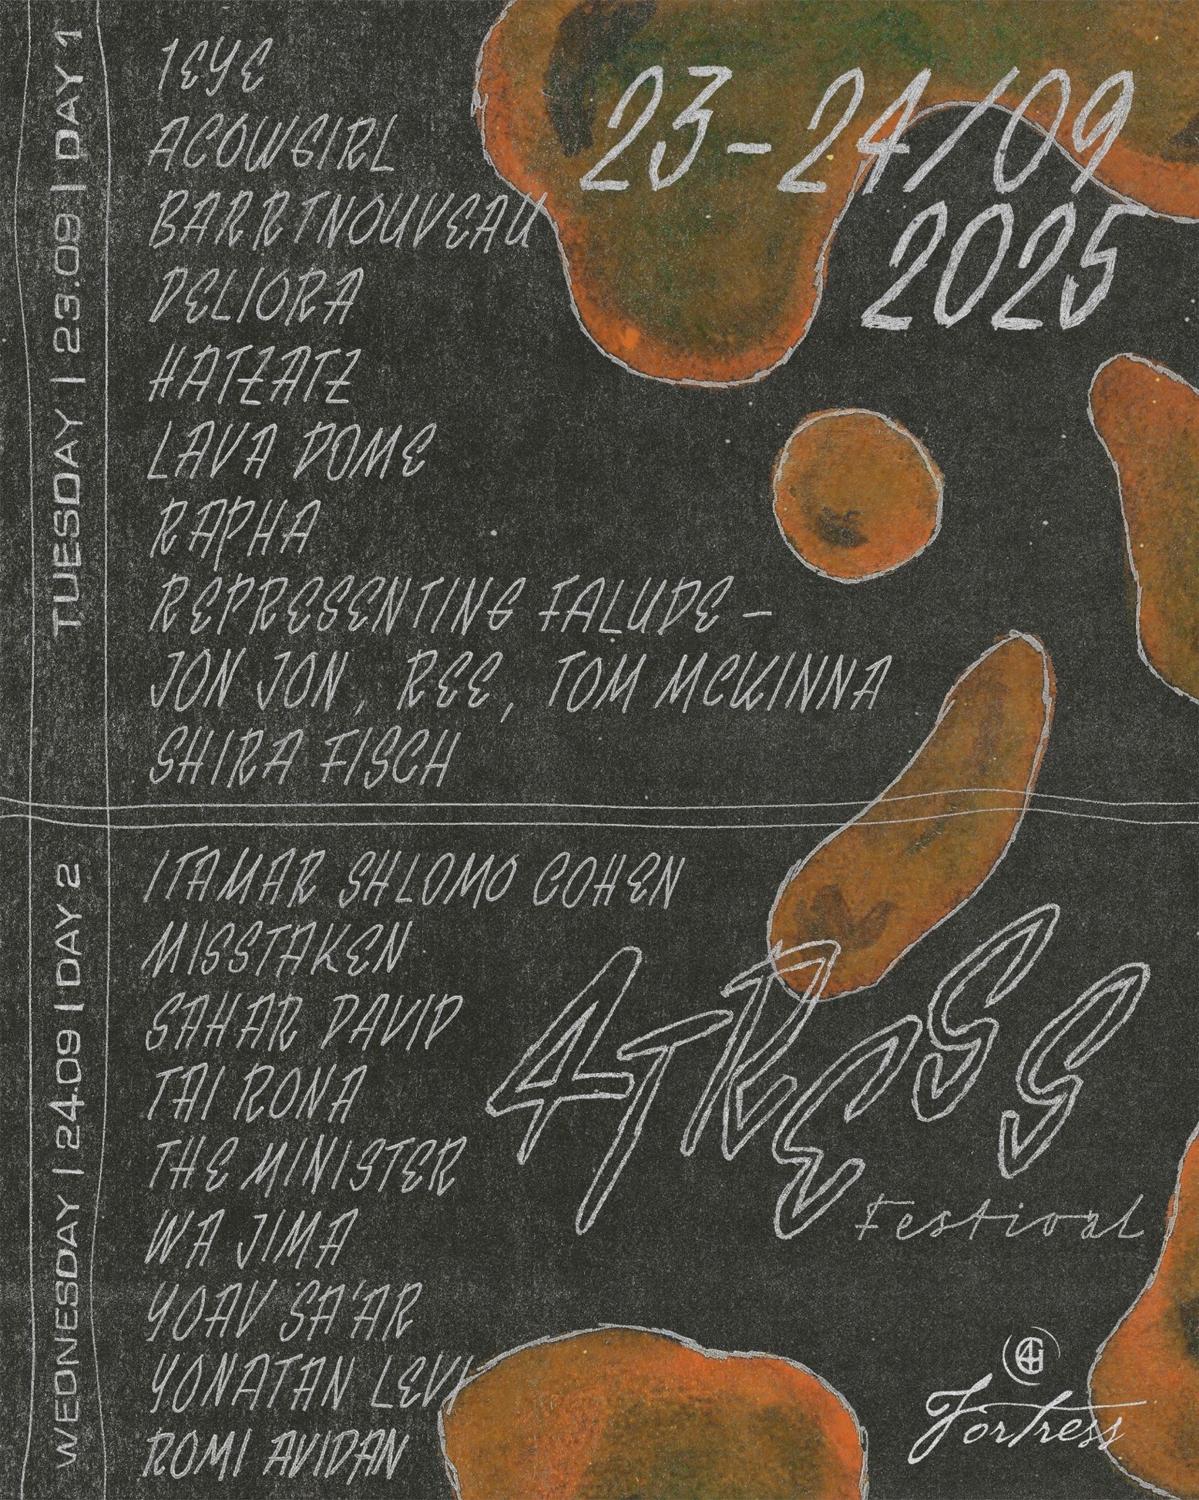 23-24/09
2025
TUESDAY | 23.09 | DAY 1
1EYE
ACOWGIRL
BARRTNOUVEAU
DELIORA
HATZATZ
LAVA DOME
RAPHA
REPRESENTING FALUDE -
JON JON, REE, TOM MCKINNA
SHIRA FISCH
WEDNESDAY | 24.09 | DAY 2
ITAMAR SHLOMO COHEN
MISSTAKEN
SAHAR DAVID
TAI RONA
THE MINISTER
WA JIMA
YOAV SA'AR
YONATAN LEVI
ROMI AVIDAN
4TRESS
Festival
Fortress